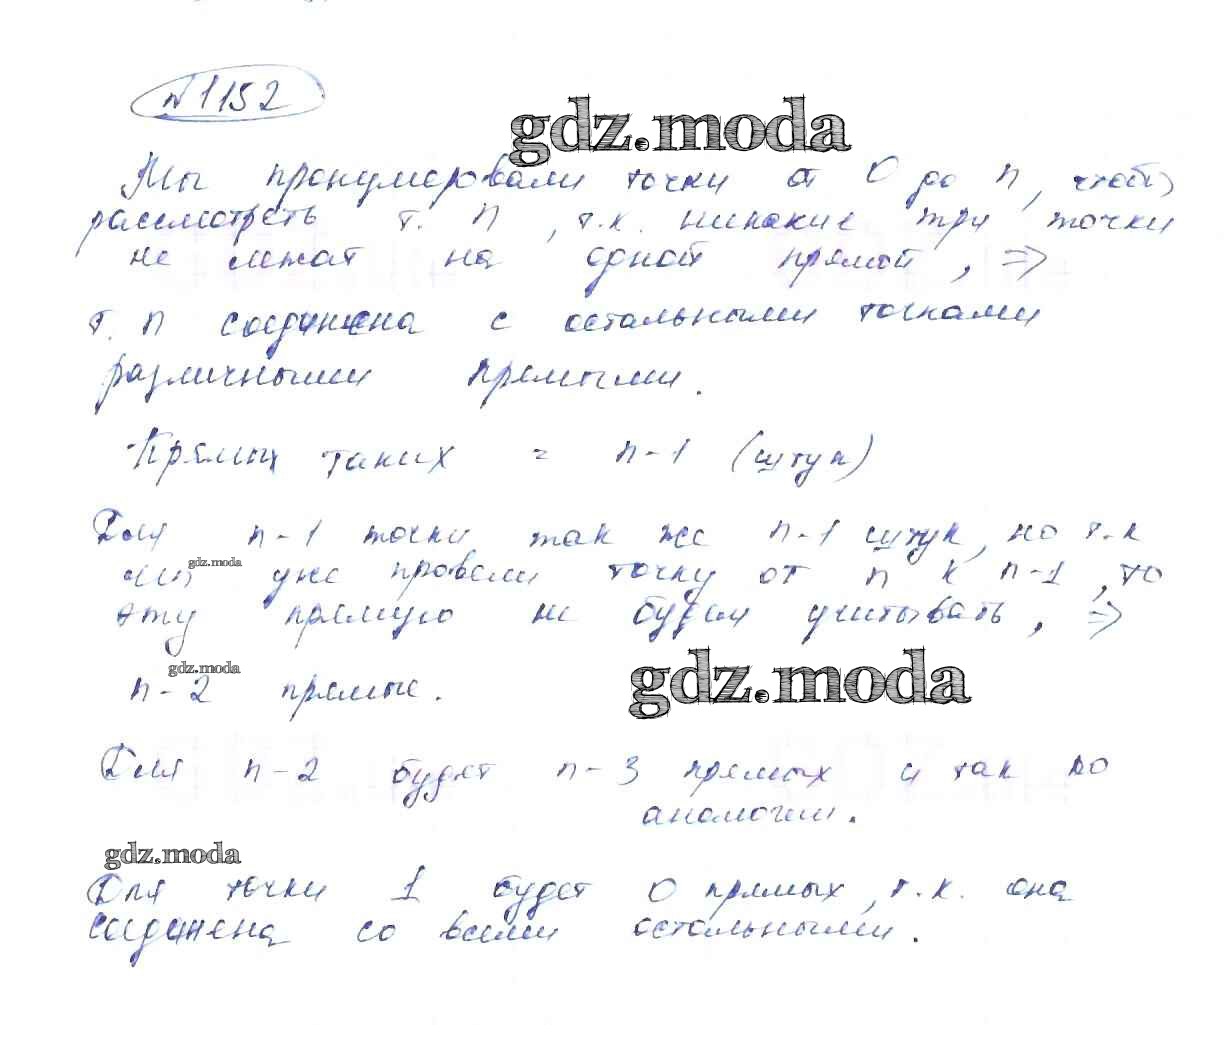 №1152
gdz.moda
Мы пронумеровали точки от 0 до n, чтобы
рассмотреть т. n, т.к. никакие три точки
не лежат на одной прямой, =>
т. n соединена с остальными точками
различными прямыми.
Прямых таких = n-1 (штук)
Для n-1 точки так же n-1 штук, но т.к
мы уже провели точку от n к n-1, то
gdz.moda
эту прямую не будем учитывать, =>
n-2 прямые.
gdz.moda
gdz.moda
Для n-2 будет n-3 прямых и так по
аналогии.
gdz.moda
Для точки 1 будет 0 прямых, т.к. она
соединена со всеми остальными.